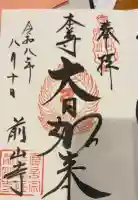 奉拝
本尊
大日如来
令和八年
八月十日
前山寺